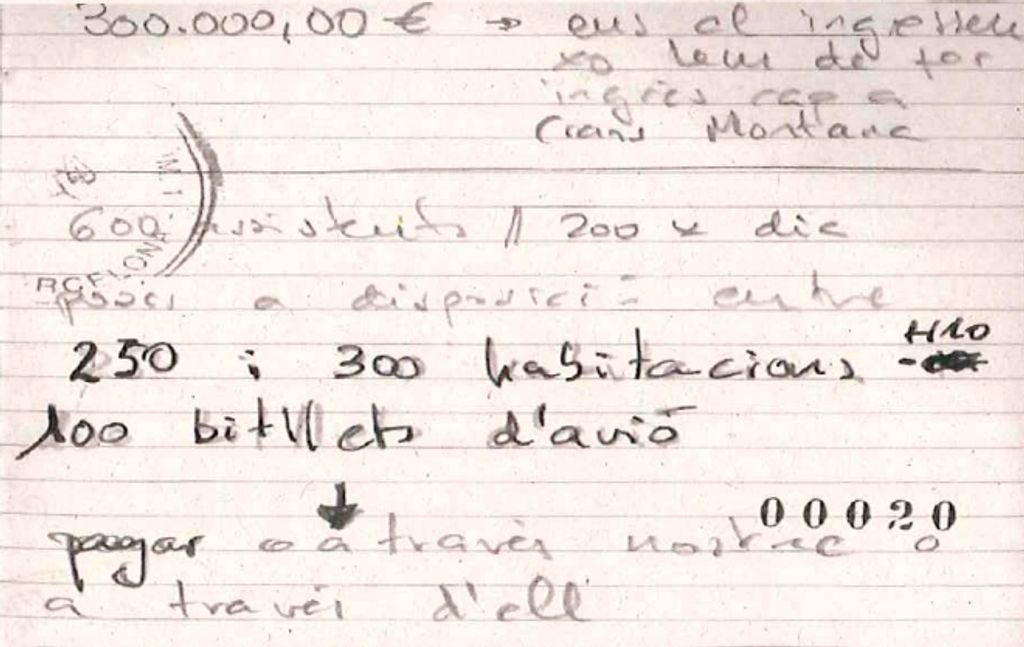 300.000,00 € → ens el ingressen
xo hem de fer
ingrés cap a
Crans Montana
600 assistents // 200 x dia
RCELONA
posar a disposició entre
250 i 300 habitacions H10
100 bitllets d'avió
↓
00020
pagar o a través nostre o
a través d'ell